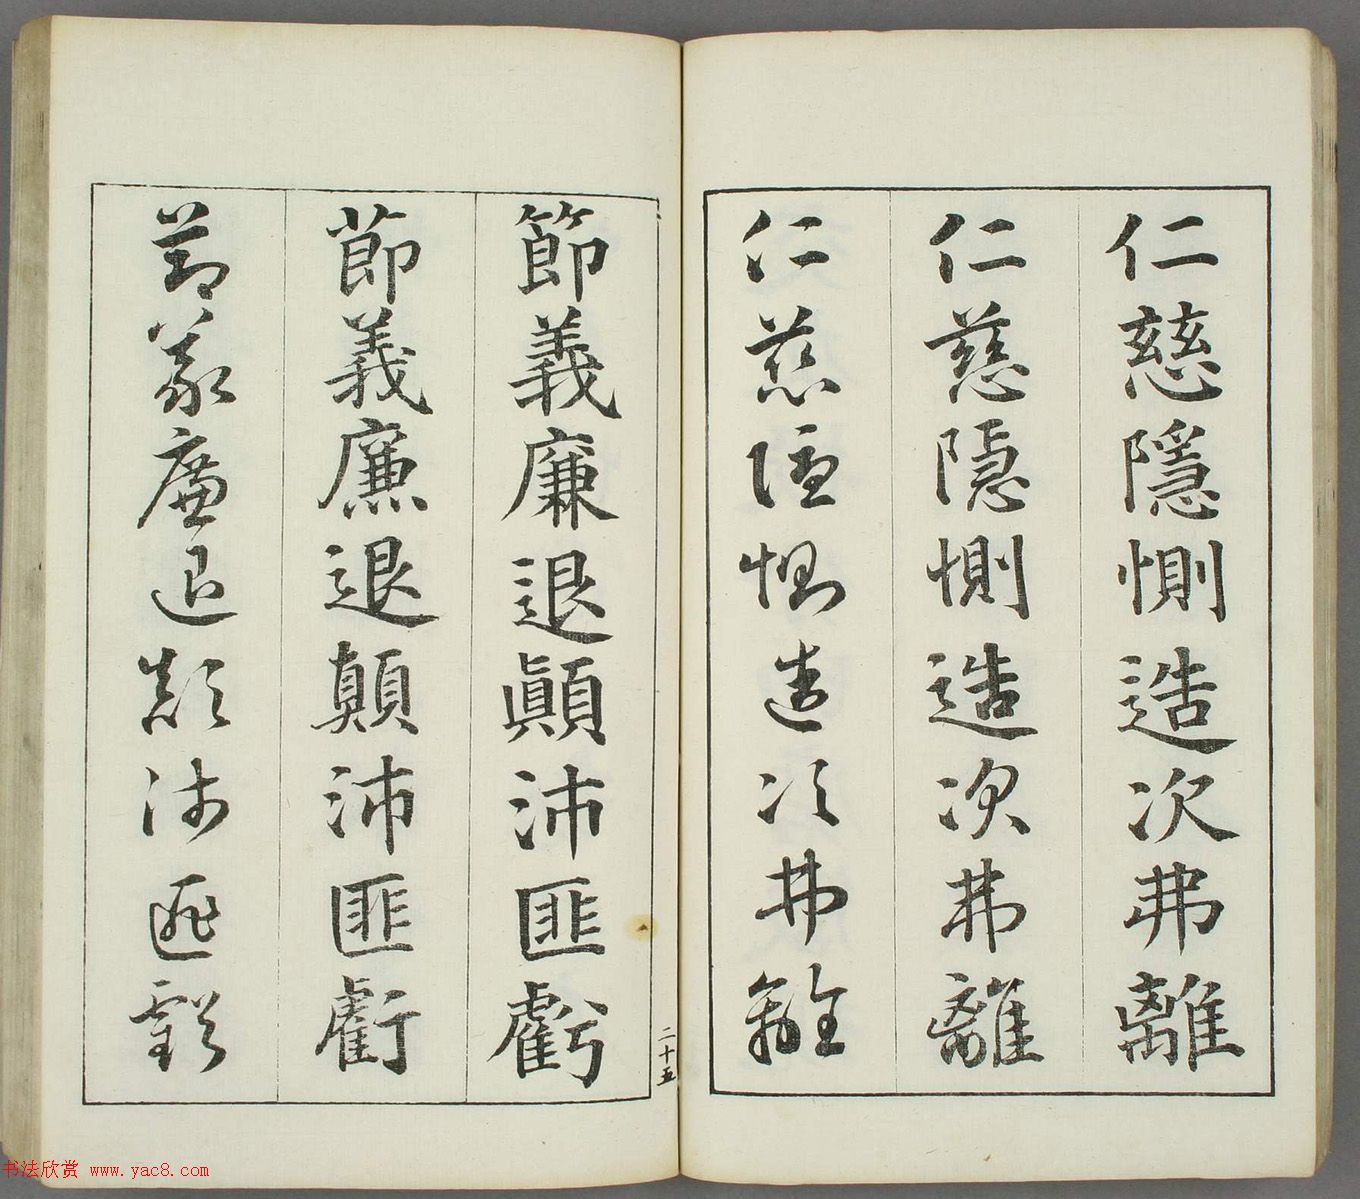 仁慈隱惻造次弗離
仁慈隱惻造次弗離
仁慈隱惻造次弗離
節義廉退顛沛匪虧
節義廉退顛沛匪虧
節義廉退顛沛匪虧
二十五
书法欣赏 www.yac8.com